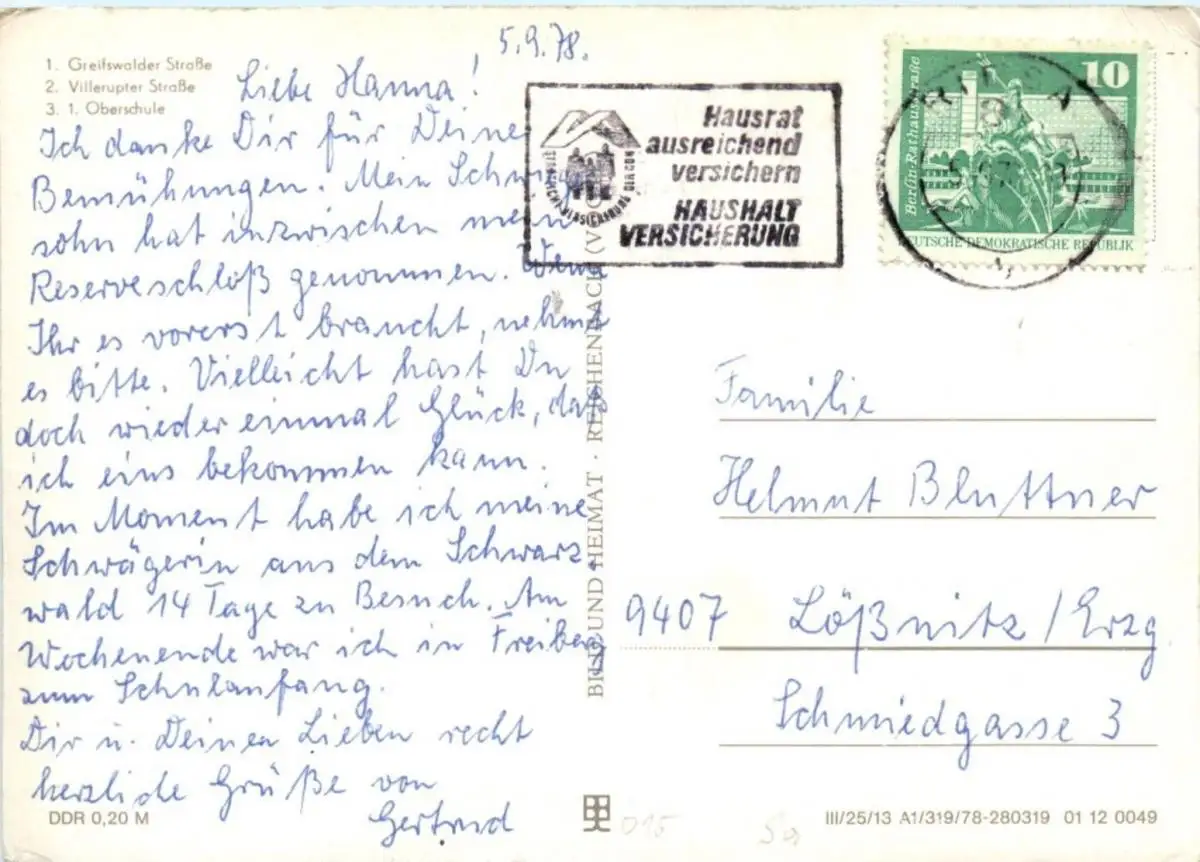 5.9.78.
1. Greifswalder Straße
2. Villerupter Straße
3. 1. Oberschule
Liebe Hanna!
Ich danke Dir für Deine
Bemühungen. Mein Schwieger
sohn hat inzwischen mein
Reserveschloß genommen. Wenn
Ihr es vorerst braucht, nehmt
es bitte. Vielleicht hast Du
doch wieder einmal Glück, daß
ich eins bekommen kann.
Im Moment habe ich meine
Schwägerin aus dem Schwarz
wald 14 Tage zu Besuch. Am
Wochenende war ich in Freiberg
zum Schulanfang.
Dir u. Deinen Lieben recht
herzliche Grüße von
Gertrud
DDR 0,20 M
BILD UND HEIMAT · REICHENBACH (VOGTL)
Hausrat
ausreichend
versichern
HAUSHALT
VERSICHERUNG
STAATLICHE VERSICHERUNG DER DDR
RIESA
10
Berlin-Rathausstraße
DEUTSCHE DEMOKRATISCHE REPUBLIK
Familie
Helmut Bluttner
9407 Lößnitz/Erzg
Schmiedgasse 3
III/25/13 A1/319/78-280319 01 12 0049
015